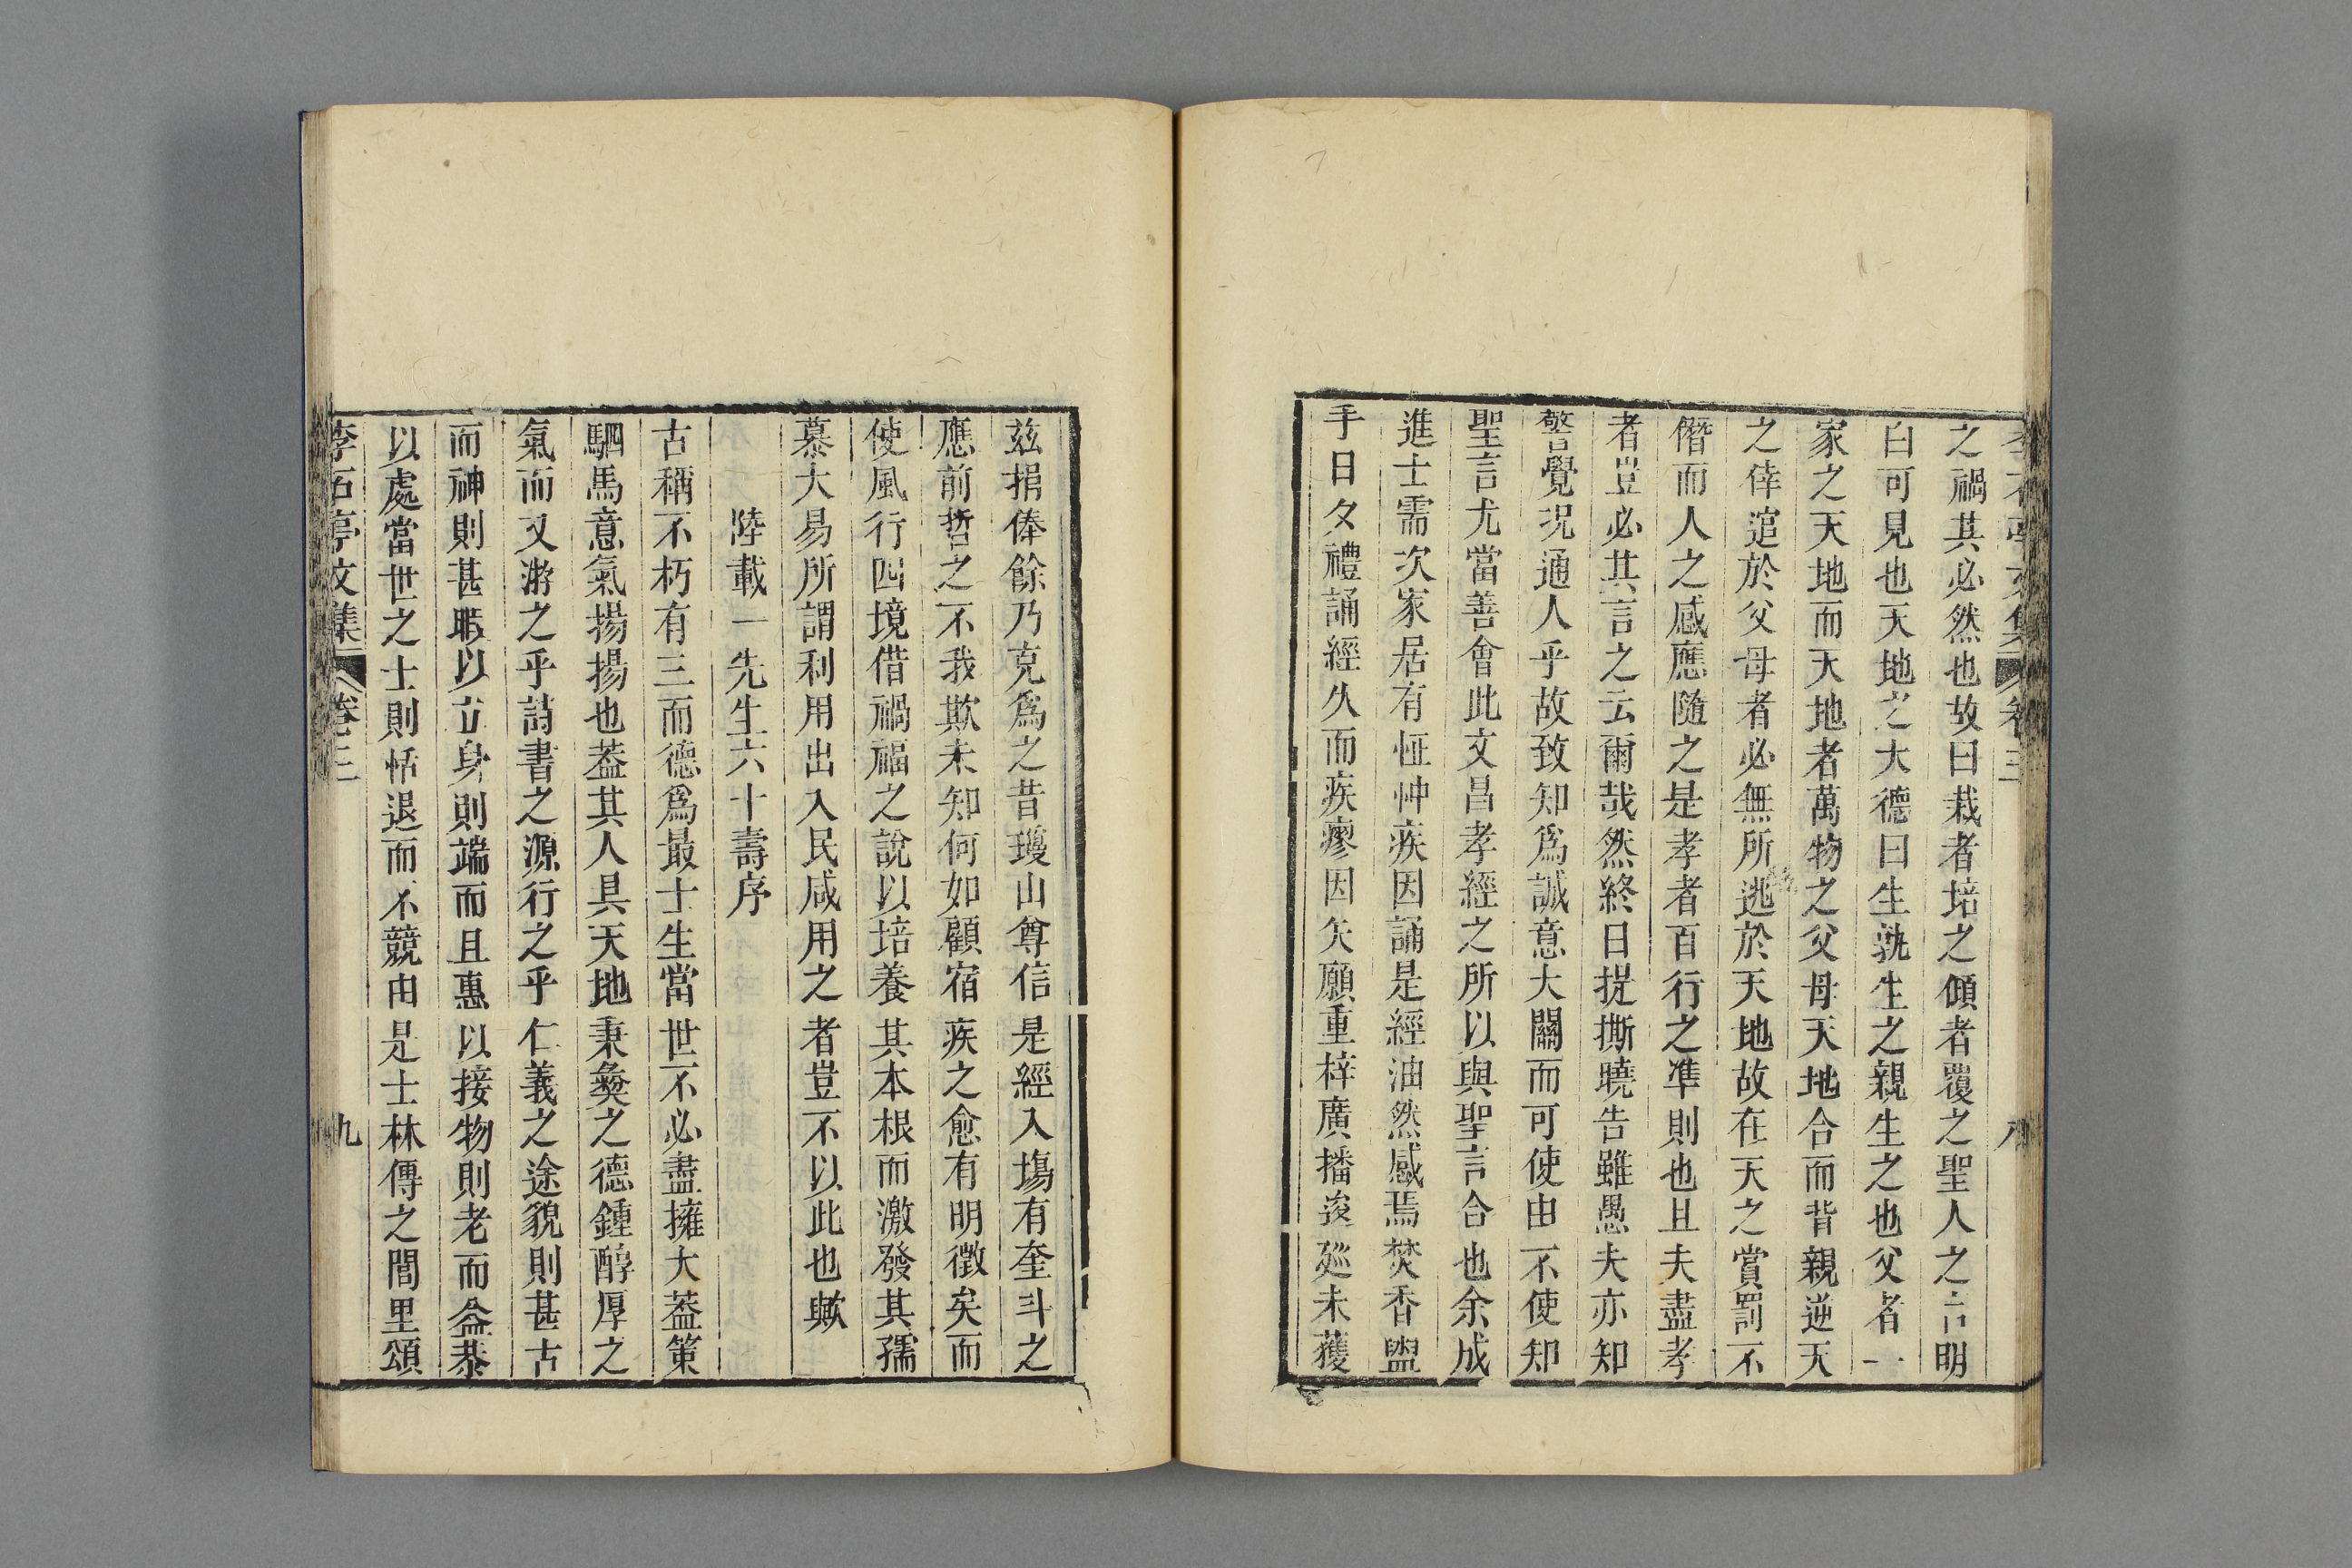 之禍其必然也故曰栽者培之傾者覆之聖人之言明
白可見也天地之大德曰生孰生之親生之也父者一
家之天地而天地者萬物之父母天地合而背親逆天
之倖逭於父母者必無所逃於天地故在天之賞罰不
僭而人之感應隨之是孝者百行之準則也且夫盡孝
者豈必其言之云爾哉然終日提撕曉告雖愚夫亦知
警覺況通人乎故致知為誠意大關而可使由不使知
聖言尤當善會此文昌孝經之所以與聖言合也余成
進士需次家居有怔忡疾因誦是經油然感焉焚香盥
手日夕禮誦經久而疾瘳因矢願重梓廣播逡廵未獲
茲捐俸餘乃克為之昔瓊山尊信是經入塲有奎斗之
應前哲之不我欺未知何如顧宿疾之愈有明徵矣而
使風行四境借禍福之說以培養其本根而激發其孺
慕大易所謂利用出入民咸用之者豈不以此也歟
陸載一先生六十壽序
古稱不朽有三而德為最士生當世不必盡擁大葢策
駟馬意氣揚揚也葢其人具天地秉彝之德鍾醇厚之
氣而又游之乎詩書之源行之乎仁義之途貌則甚古
而神則甚暇以立身則端而且惠以接物則老而益恭
以處當世之士則恬退而不競由是士林傳之閭里頌
李石亭文集 卷三 九